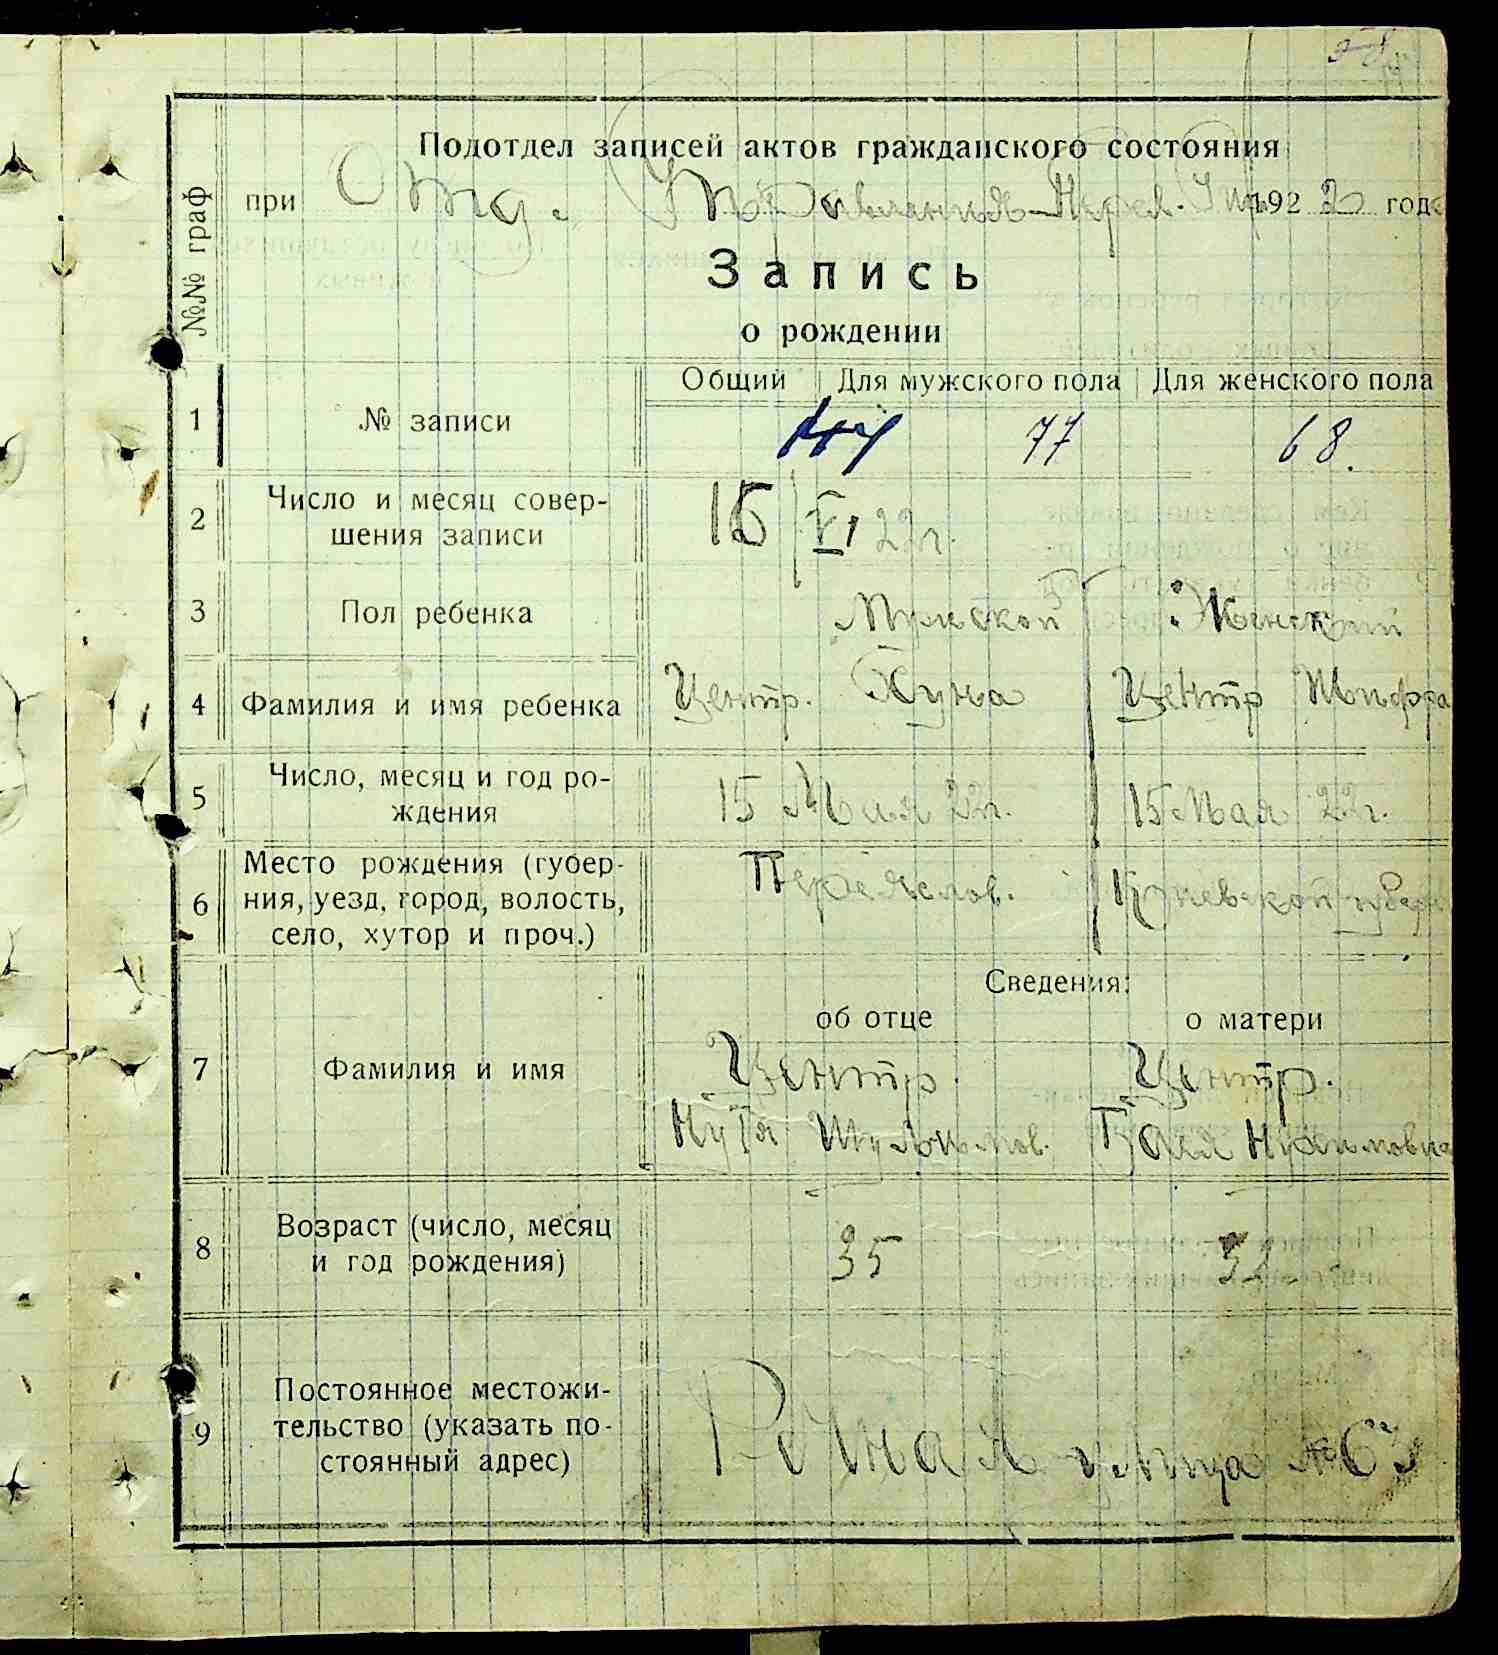 Подотдел записей актов гражданского состояния
№№ граф
при Отд. Управления Перея. 1922 года
Запись
о рождении
Общий Для мужского пола Для женского пола
1 № записи 77 68.
2 Число и месяц совер-
шения записи
15 VI 22 г.
3 Пол ребенка Мужской Женский
4 Фамилия и имя ребенка Центр. Хуна Центр
5 Число, месяц и год ро-
ждения
15 Мая 22 г. 15 Мая 22 г.
6 Место рождения (губер-
ния, уезд, город, волость,
село, хутор и проч.)
Переяслов. Киевской губер
Сведения:
об отце о матери
7 Фамилия и имя
Центр. Центр.
Нута Бася
8 Возраст (число, месяц
и год рождения)
35 32
9 Постоянное местожи-
тельство (указать по-
стоянный адрес)
улица №